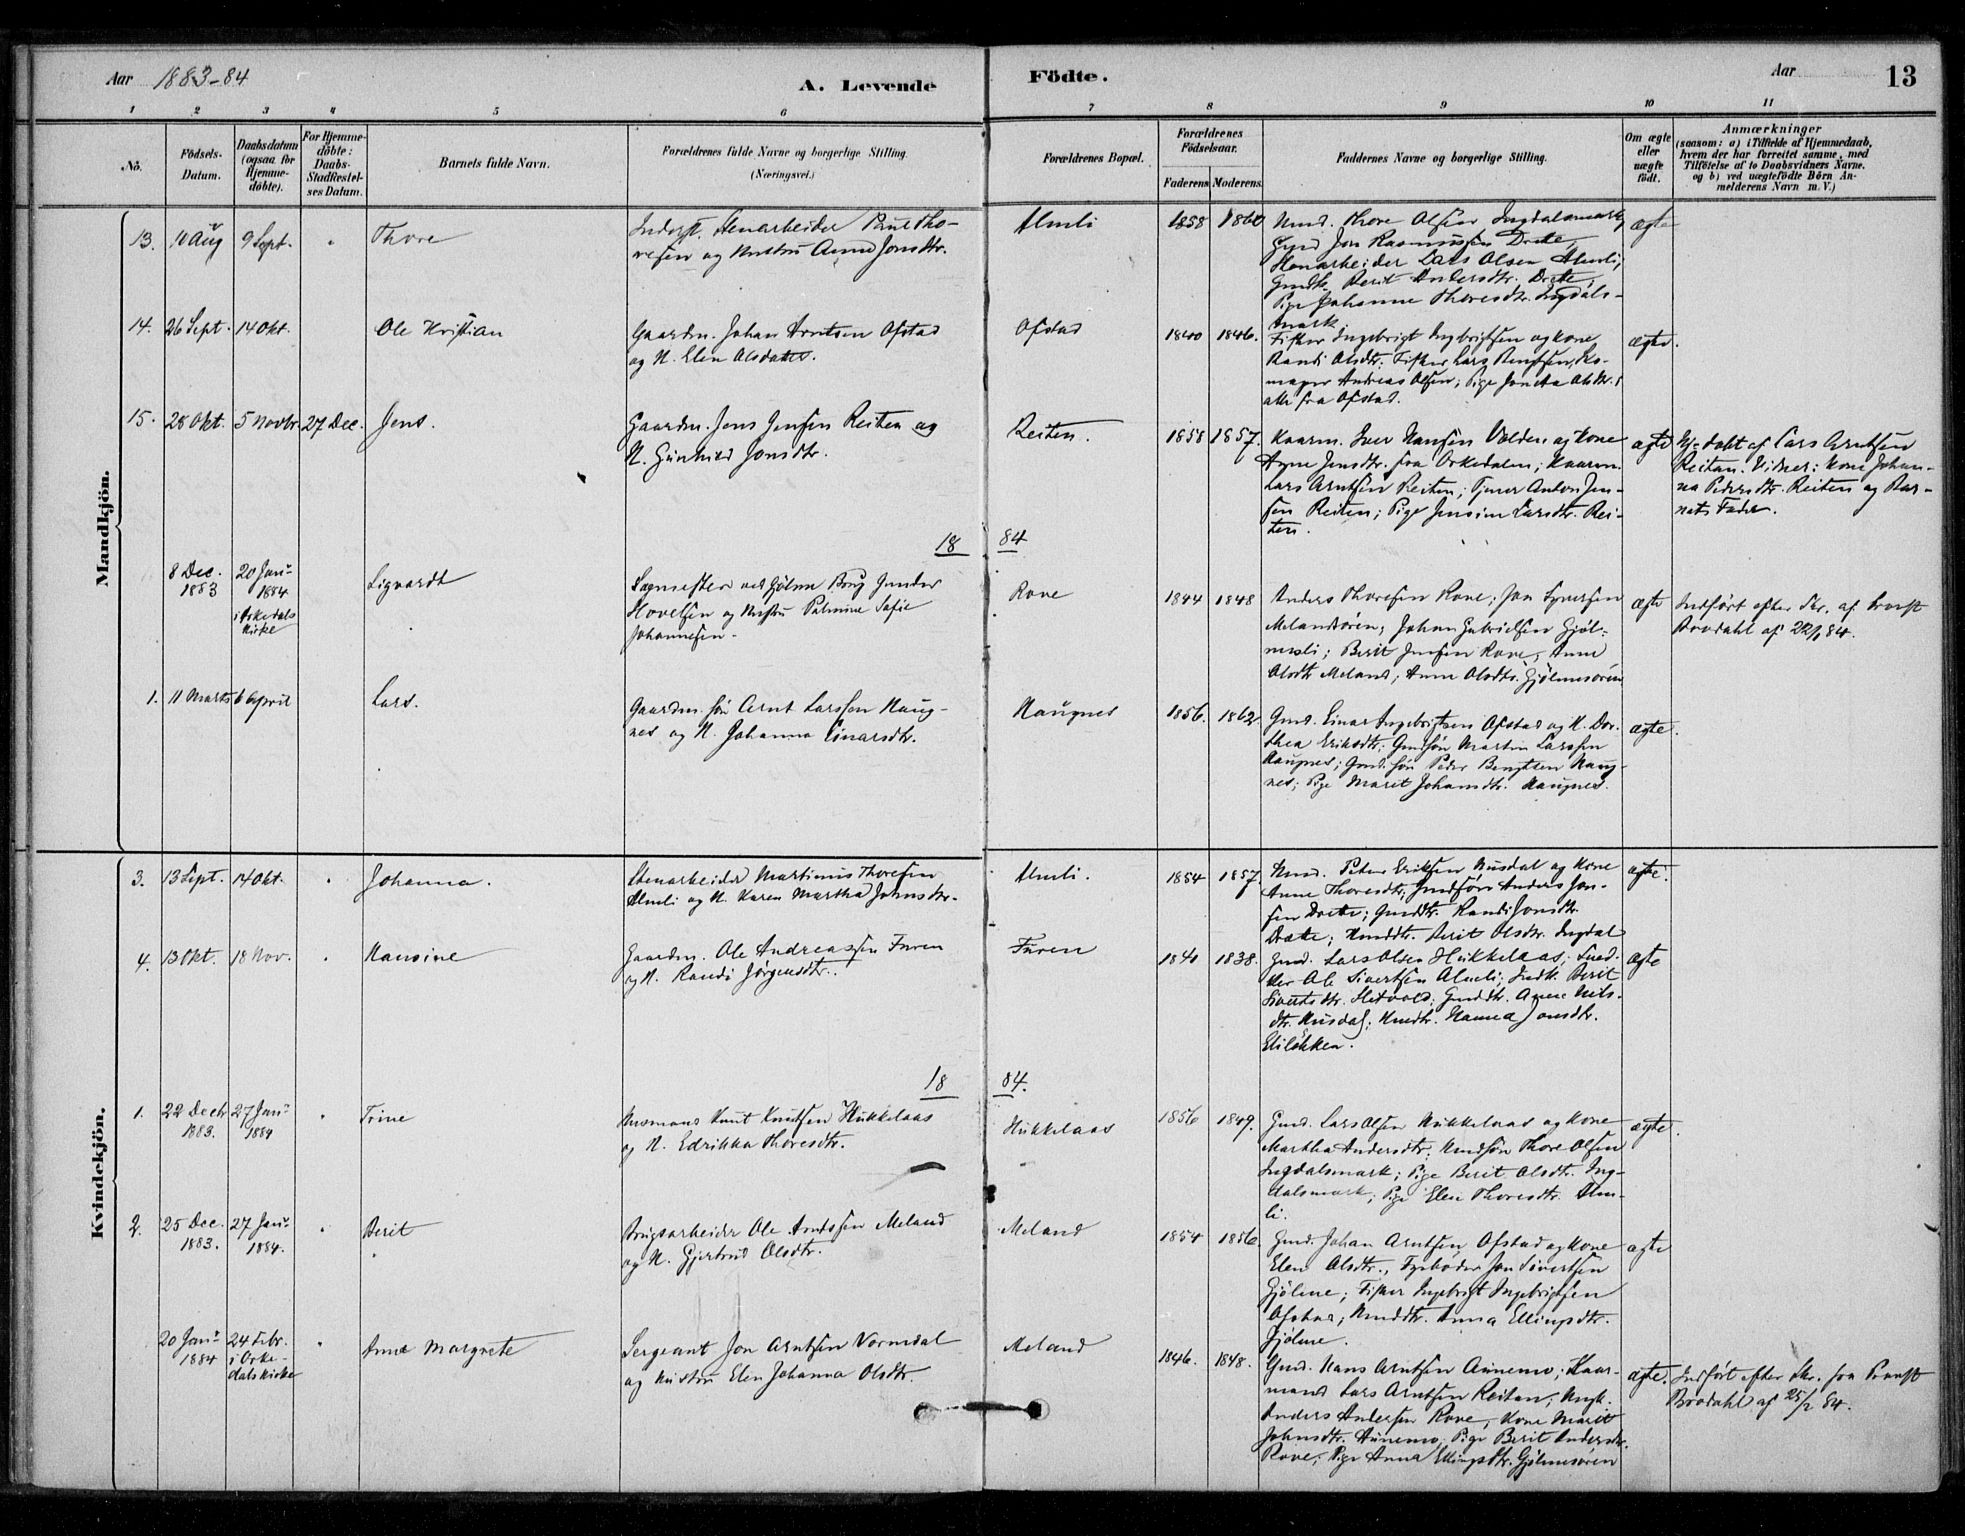 Aar 1883-84
A. Levende
Födte.
Aar
13
1 2 3 4 5 6 7 8 9 10 11
No.
Födsels-
Datum.
Daabsdatum
(ogsaa for
Hjemme-
döbte).
For Hjemme-
döbte:
Daabs-
Stadfæstel-
ses Datum.
Barnets fulde Navn.
Forældrenes fulde Navne og borgerlige Stilling.
(Næringsvei.)
Forældrenes Bopæl.
Forældrenes
Födselsaar.
Faderens Moderens.
Faddernes Navne og borgerlige Stilling.
Om ægte
eller
uægte
födt.
Anmærkninger
(saasom: a) i Tilfælde af Hjemmedaab,
hvem der har forrettet samme, med
Tilföielse af to Daabsvidners Navne.
og b) ved uægtefödte Börn An-
melderens Navn m. V.)
Mandkjön.
13. 10 Aug 9 Sept. Thore
Stenarbeider Paul Tho-
resen og Hustru Anne Jonsdtr.
Almli 1858 1860
Thore Olsen Ingdalsmark,
Gmd Jon Rasmussen Drete,
Stenarbeider Lars Olsen Almli,
Berit Andersdtr. Drete,
Pige Johanna Thoresdtr. Ingdals-
mark.
ægte
14. 26 Sept. 14 Okt. Ole Kristian
Gaardm. Johan Arntsen Ofstad
og H. Elen Olsdatter.
Ofstad 1840 1846.
Fisker Ingebrigt Ingebrigtsen og kone
Randi Olsdtr. Fisker Lars Bentsen, Sko-
mager Andreas Olsen; Pige Olsdtr.;
alle fra Ofstad.
ægte.
15. 28 Okt. 5 Novbr. 27 Dec. Jens.
Gaardm. Jens Jensen Reiten og
H. Gunhild Jonsdtr.
Reiten. 1858 1857.
Kaarm. Iver Hansen Volden og Kone
Jensdtr. fra Orkedalen; Kaarm.
Lars Arntsen Reiten; Tjener Anton Jen-
sen Reiten; Pige Jensine Larsdtr. Rei-
ten.
ægte
Hj-døbt af Lars Arntsen
Reitan. Vidner: Kone Johan-
na Pedersdtr. Reiten og Bar-
nets Fader.
18 84
8 Dec.
1883
20 Janr
1884
i Orkedals
Kirke
Sigvardt
Sagmester ved Gjølme Brug Gunder
Hovelsen og Hustru Palmine Sofie
Johannesen.
Rove 1844 1848
Anders Thoresen Rove; Jon Syversen
Melandsören; Johan Gabrielsen Gjøl-
mesli; Berit Jensen Rove, Anne
Olsdtr Meland, Anne Olsdtr. Gjølmesören
ægte
Indført efter Skr. af Provst
Brodahl af 22/1 84.
1. 11 Marts 6 April Lars.
Gaardm. søn Arnt Larssen Haug-
nes og H. Johanna Einarsdtr.
Haugnes 1856. 1862.
Gmd. Einar Ingebrigtsen Ofstad og H. Dor-
thea Eriksdtr; Gmdsøn Martin Larssen
Haugnes; Gmd. søn Peder Bengtsen Haug-
nes; Pige Marit Johansdtr. Haugnes.
ægte.
Kvindekjön.
3. 13 Sept. 14 Okt. Johanna.
Stenarbeider Martinus Thoresen
Almli og H. Karen Martha Johnsdtr.
Almli. 1854 1857
Hmd. Peter Eriksen Husdal og Kone
Anne Thoresdtr; Gmdsøn Anders Jon-
sen Drete; Gmddtr. Randi Jonsdtr.
Drete; Hmddtr. Berit Olsdtr. Ingdal
ægte.
4. 13 Okt. 18 Nov. Hansine
Gaardm. Ole Andreassen Furen
og H. Randi Jørgensdtr.
Furen 1840 1838.
Gmd. Lars Olsen Hukkelaas; Sned-
ker Ole Sivertsen Almli; Indk. Berit
Sivertsdtr. Gmddtr. Anne Nils-
dtr. Husdal; Hmdtr. Hanna Jonsdtr.
ægte
18 84.
1. 22 Decbr
1883.
27 Janr
1884
Trine
Husmand Knut Knutsen Hukkelaas
og H. Edrikka Thoresdtr.
Hukkelaas 1856 1849.
Gmd. Lars Olsen Hukkelaas og Kone
Martha Andersdtr; Hmdsøn Thore Olsen
Ingdalsmark; Pige Berit Olsdtr. Ing-
dalsmark; Pige Elen Thoresdtr. Alm-
li.
ægte.
2. 25 Dec.
1883.
27 Janr.
1884.
Berit
Brugsarbeider Ole Arntssen Meland
og H. Gjertrud Olsdtr.
Meland 1854 1856.
Gmd. Johan Arntsen Ofstad og Kone
Elen Olsdtr., Jon Sivertsen
Gjölme; Fisker Ingebrigt Ingebrigtsen
Ofstad, Hmddtr. Anna Ellingsdtr.
Gjölme.
ægte
20 Janr
1884
24 Febr.
i Orke-
dals Kirke
Anna Margrete
Sergeant Jon Arntsen Vormdal
og Hustru Elen Johanna Olsdtr.
Meland 1846. 1848.
Gmd. Hans Arntsen Aunemo; Kaar-
mand Lars Arntsen Reitan; Ungk.
Anders Andersen Rove, Kone Marit
Johnsdtr. Aunemo. Pige Berit Andersdtr.
Rove; Pige Anna Ellingsdtr. Gjölmesören
ægte.
Indført efter Skr. fra Provst
Brodahl af 25/2 84.